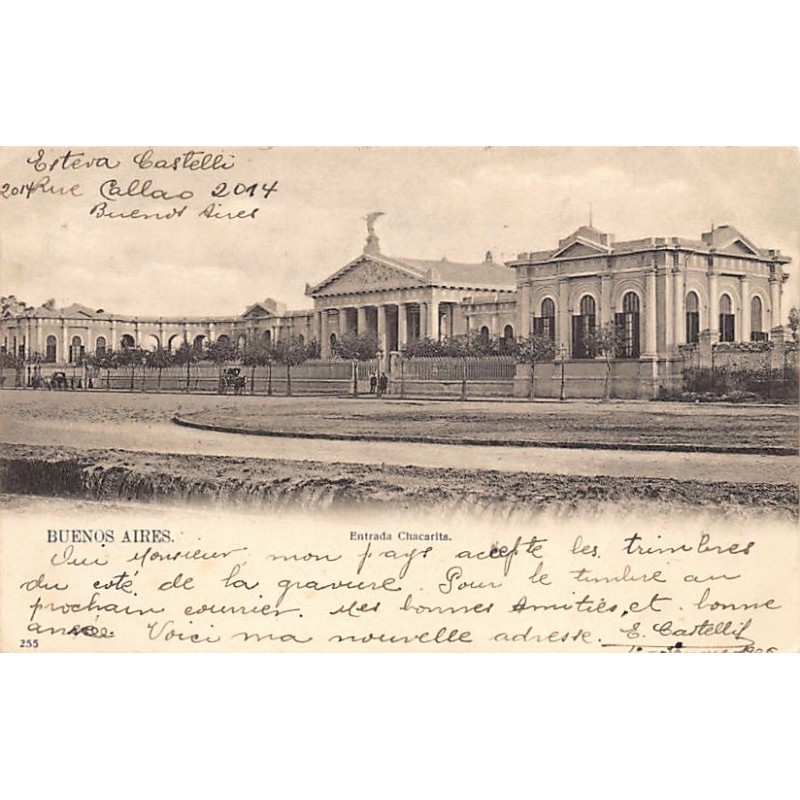 Esteva Castelli
2014 Rue Callao 2014
Buenos Aires
BUENOS AIRES.
Entrada Chacarita.
Oui Monsieur, mon pays accepte les trimbres
du coté de la gravure. Pour le timbre au
prochain courrier. Mes bonnes Amitiés, et bonne
année. Voici ma nouvelle adresse. E. Castelli
255